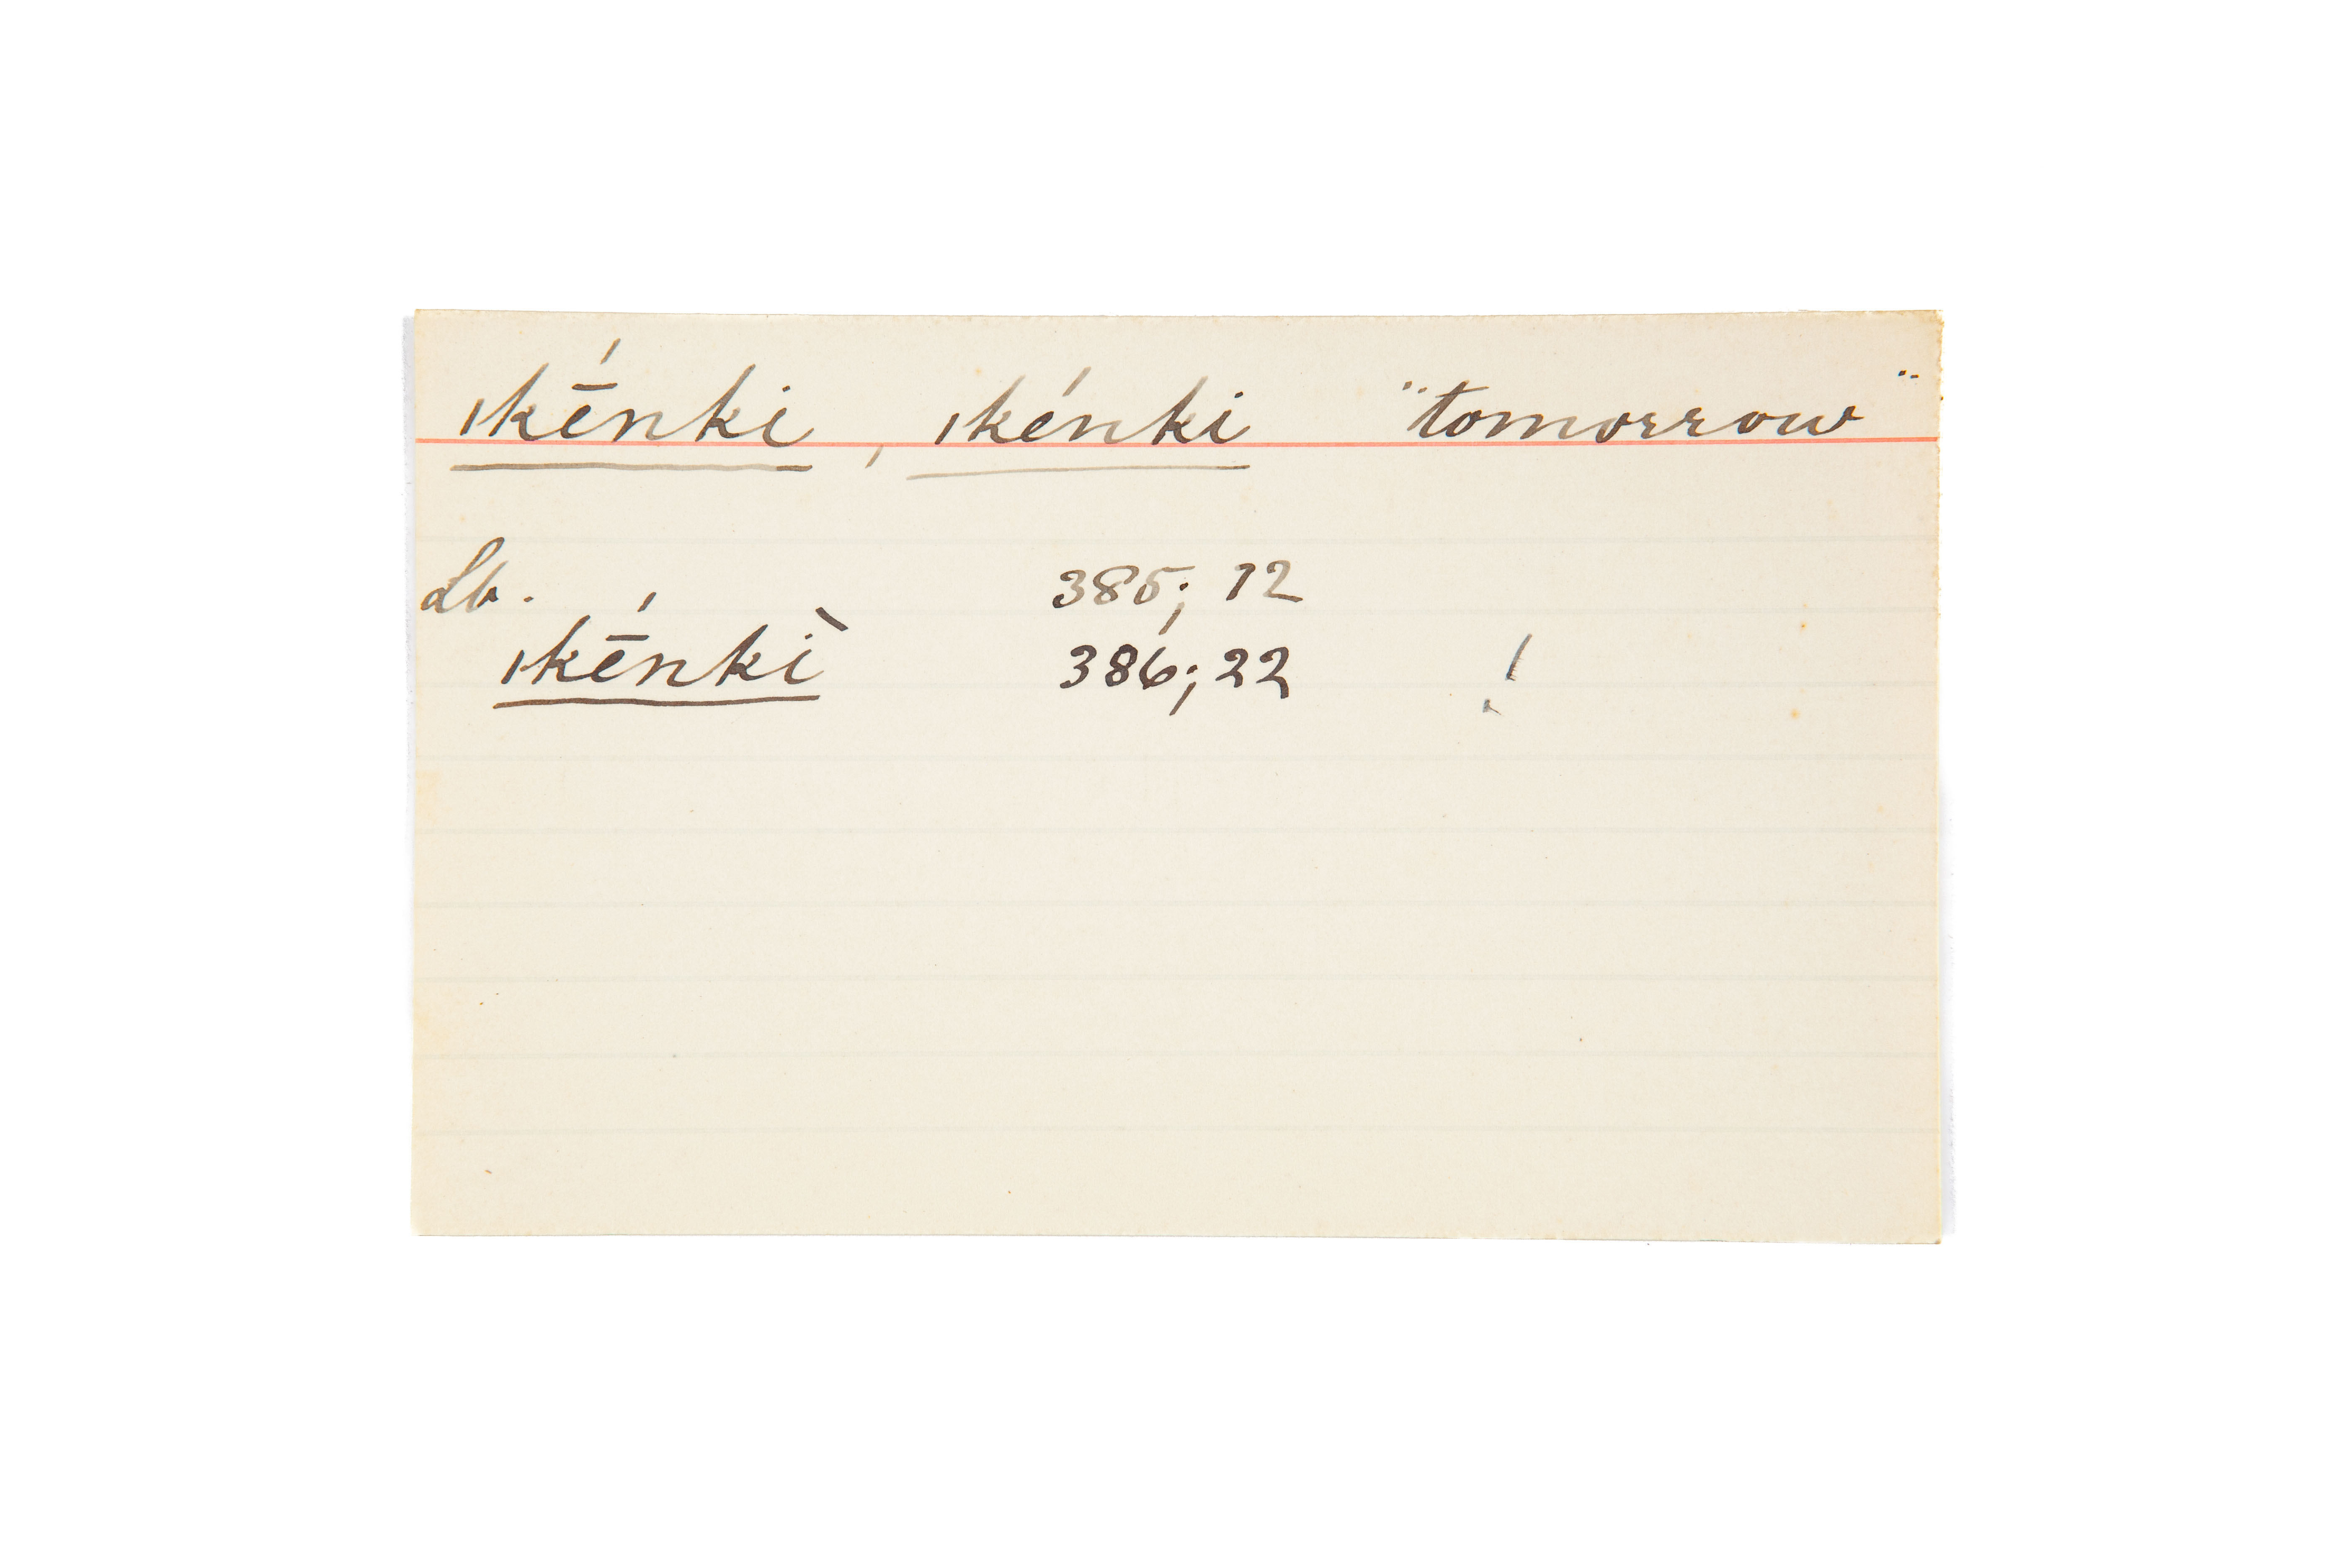 ıkḗnki, ıkénki "tomorrow"
Lb. 385; 12
ıkḗnkì 386; 22 !